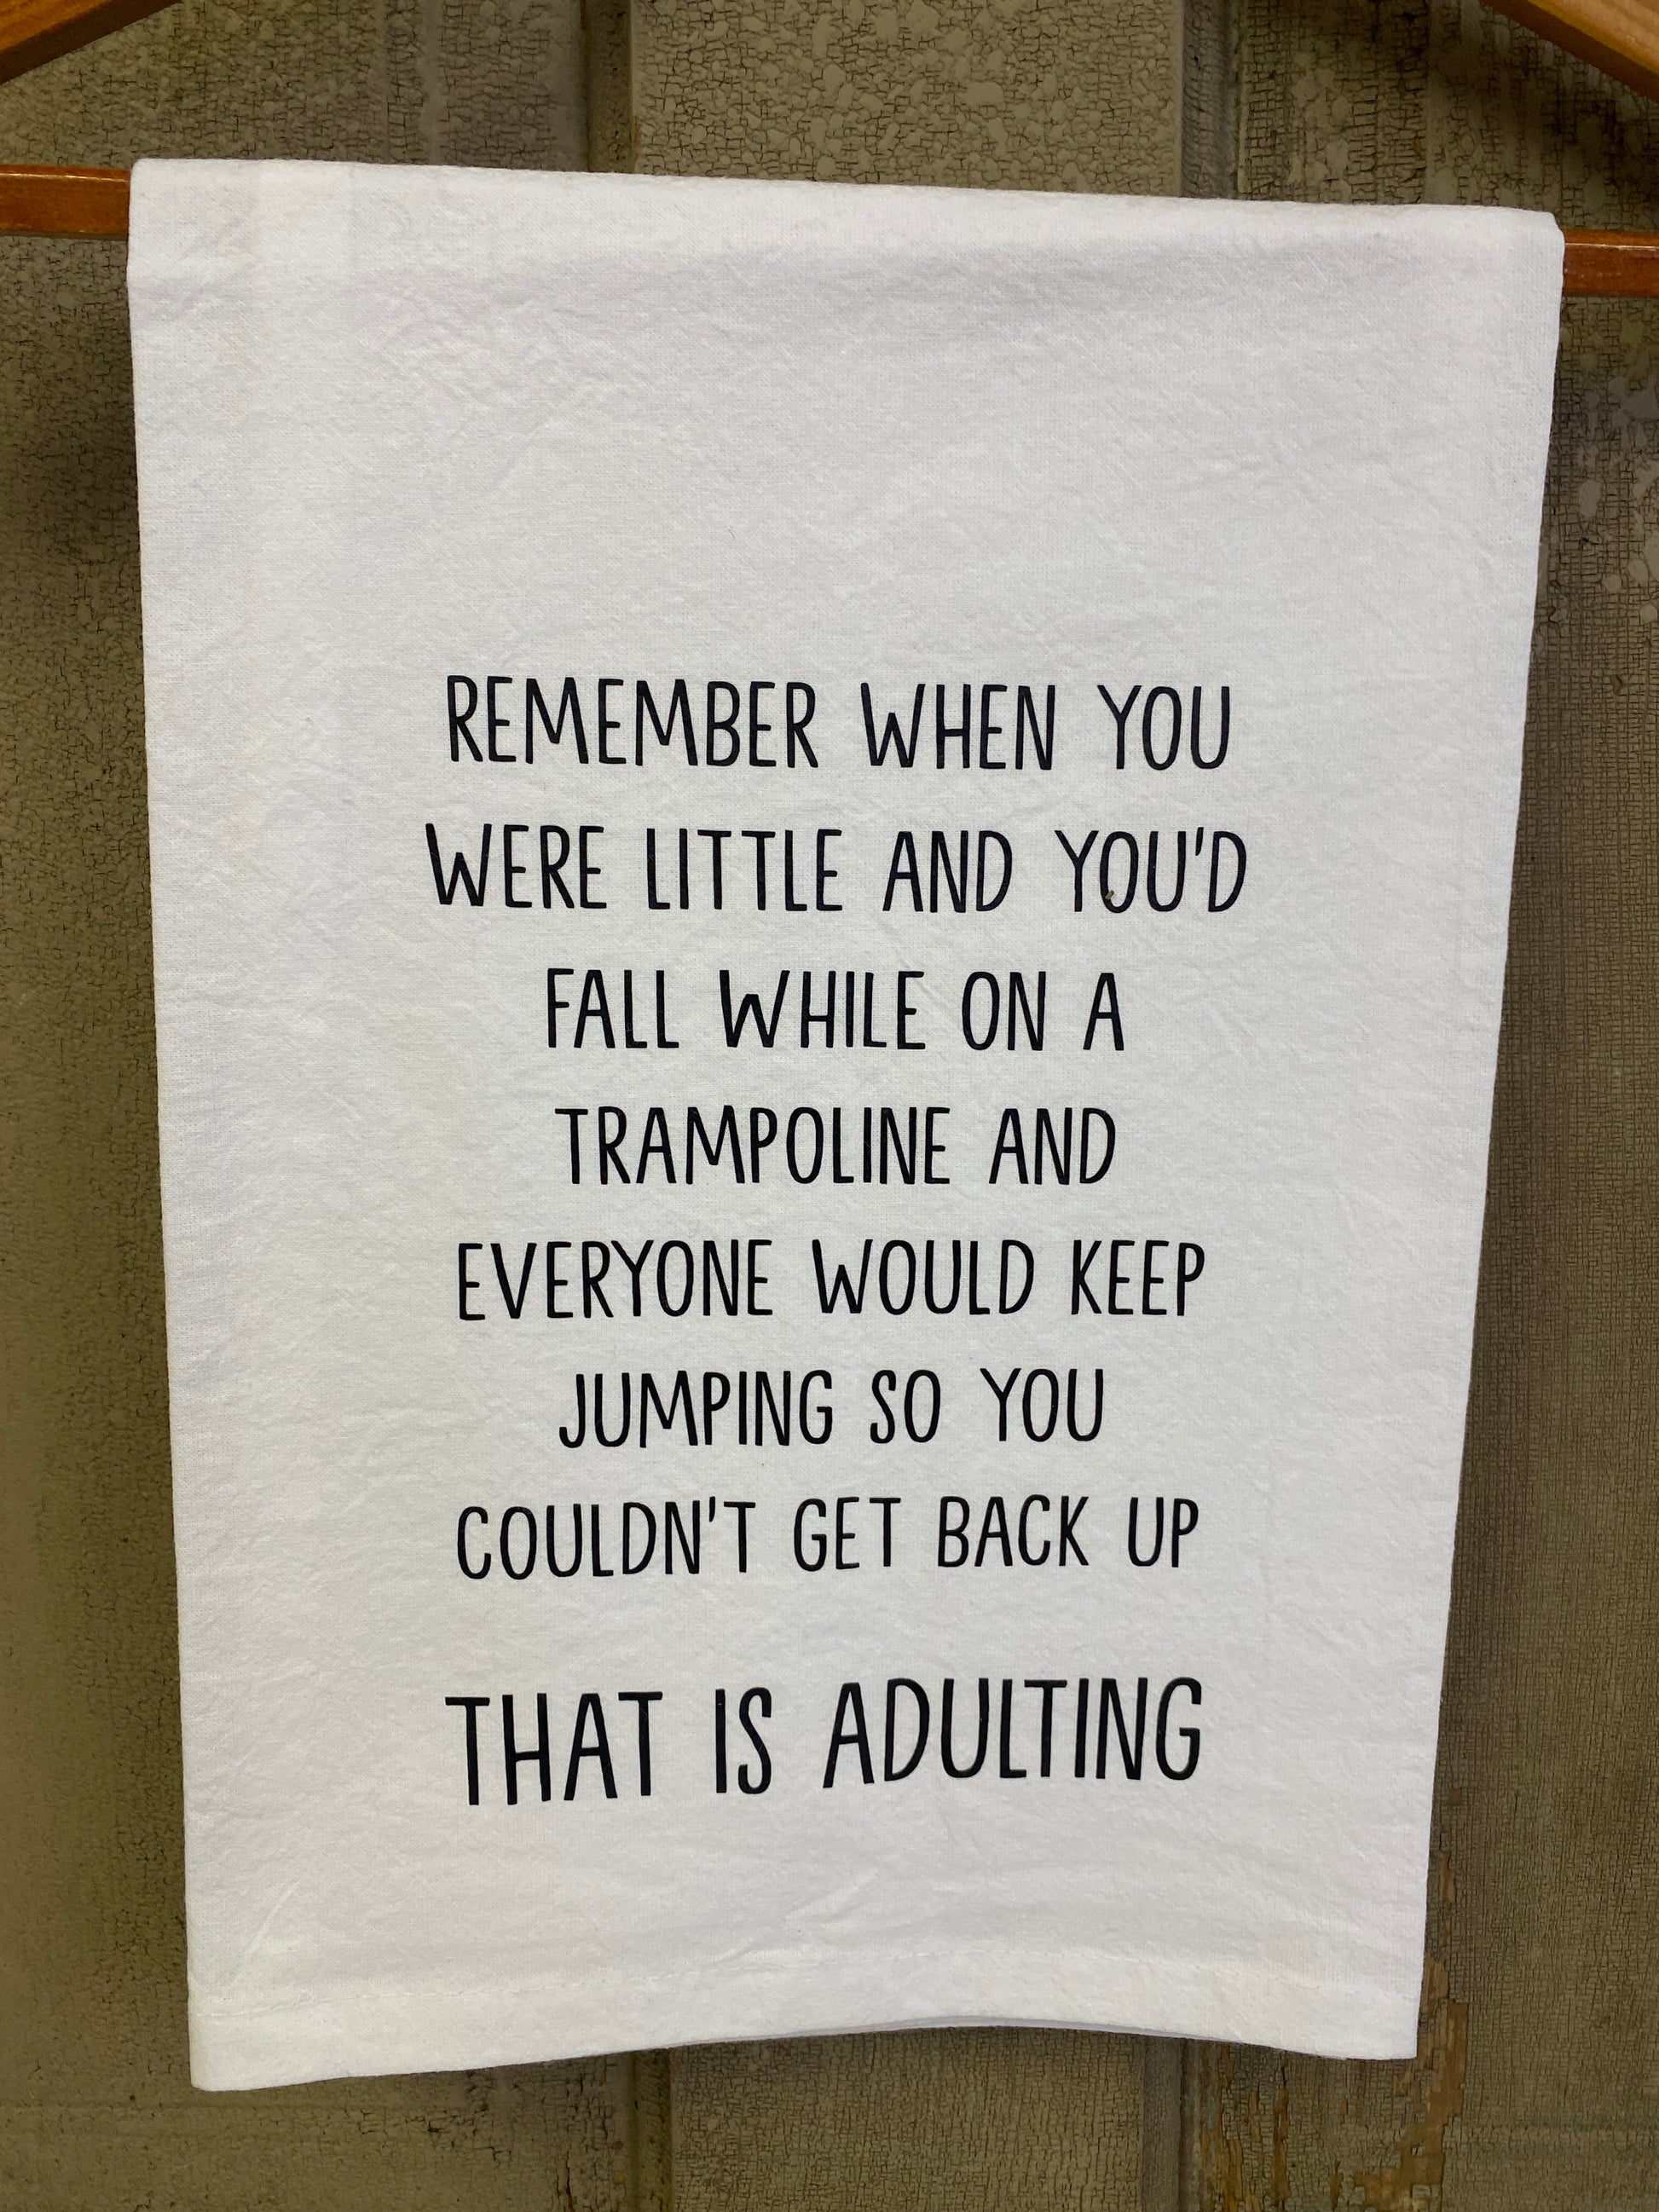 REMEMBER WHEN YOU
WERE LITTLE AND YOU'D
FALL WHILE ON A
TRAMPOLINE AND
EVERYONE WOULD KEEP
JUMPING SO YOU
COULDN'T GET BACK UP
THAT IS ADULTING